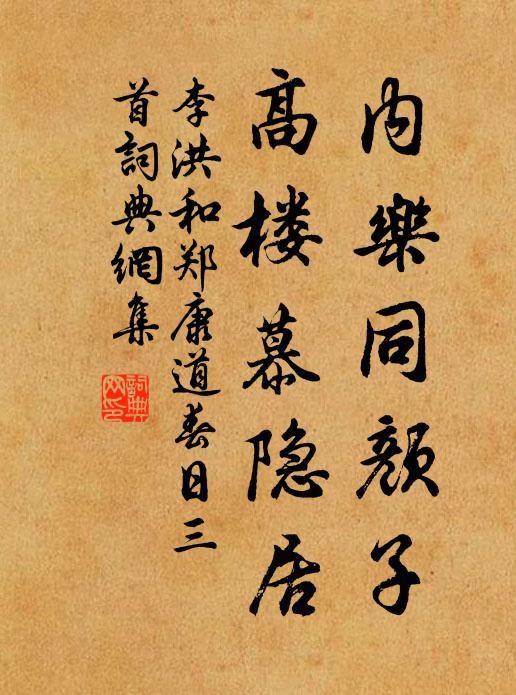 内樂同顏子
高楼慕隐居
李洪和郑康道春日三
首詞典網集
詞典網印